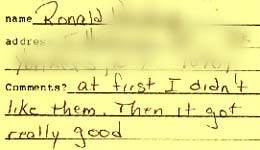 name Ronald
address
Comments? at first I didn't
like them. Then it got
really good